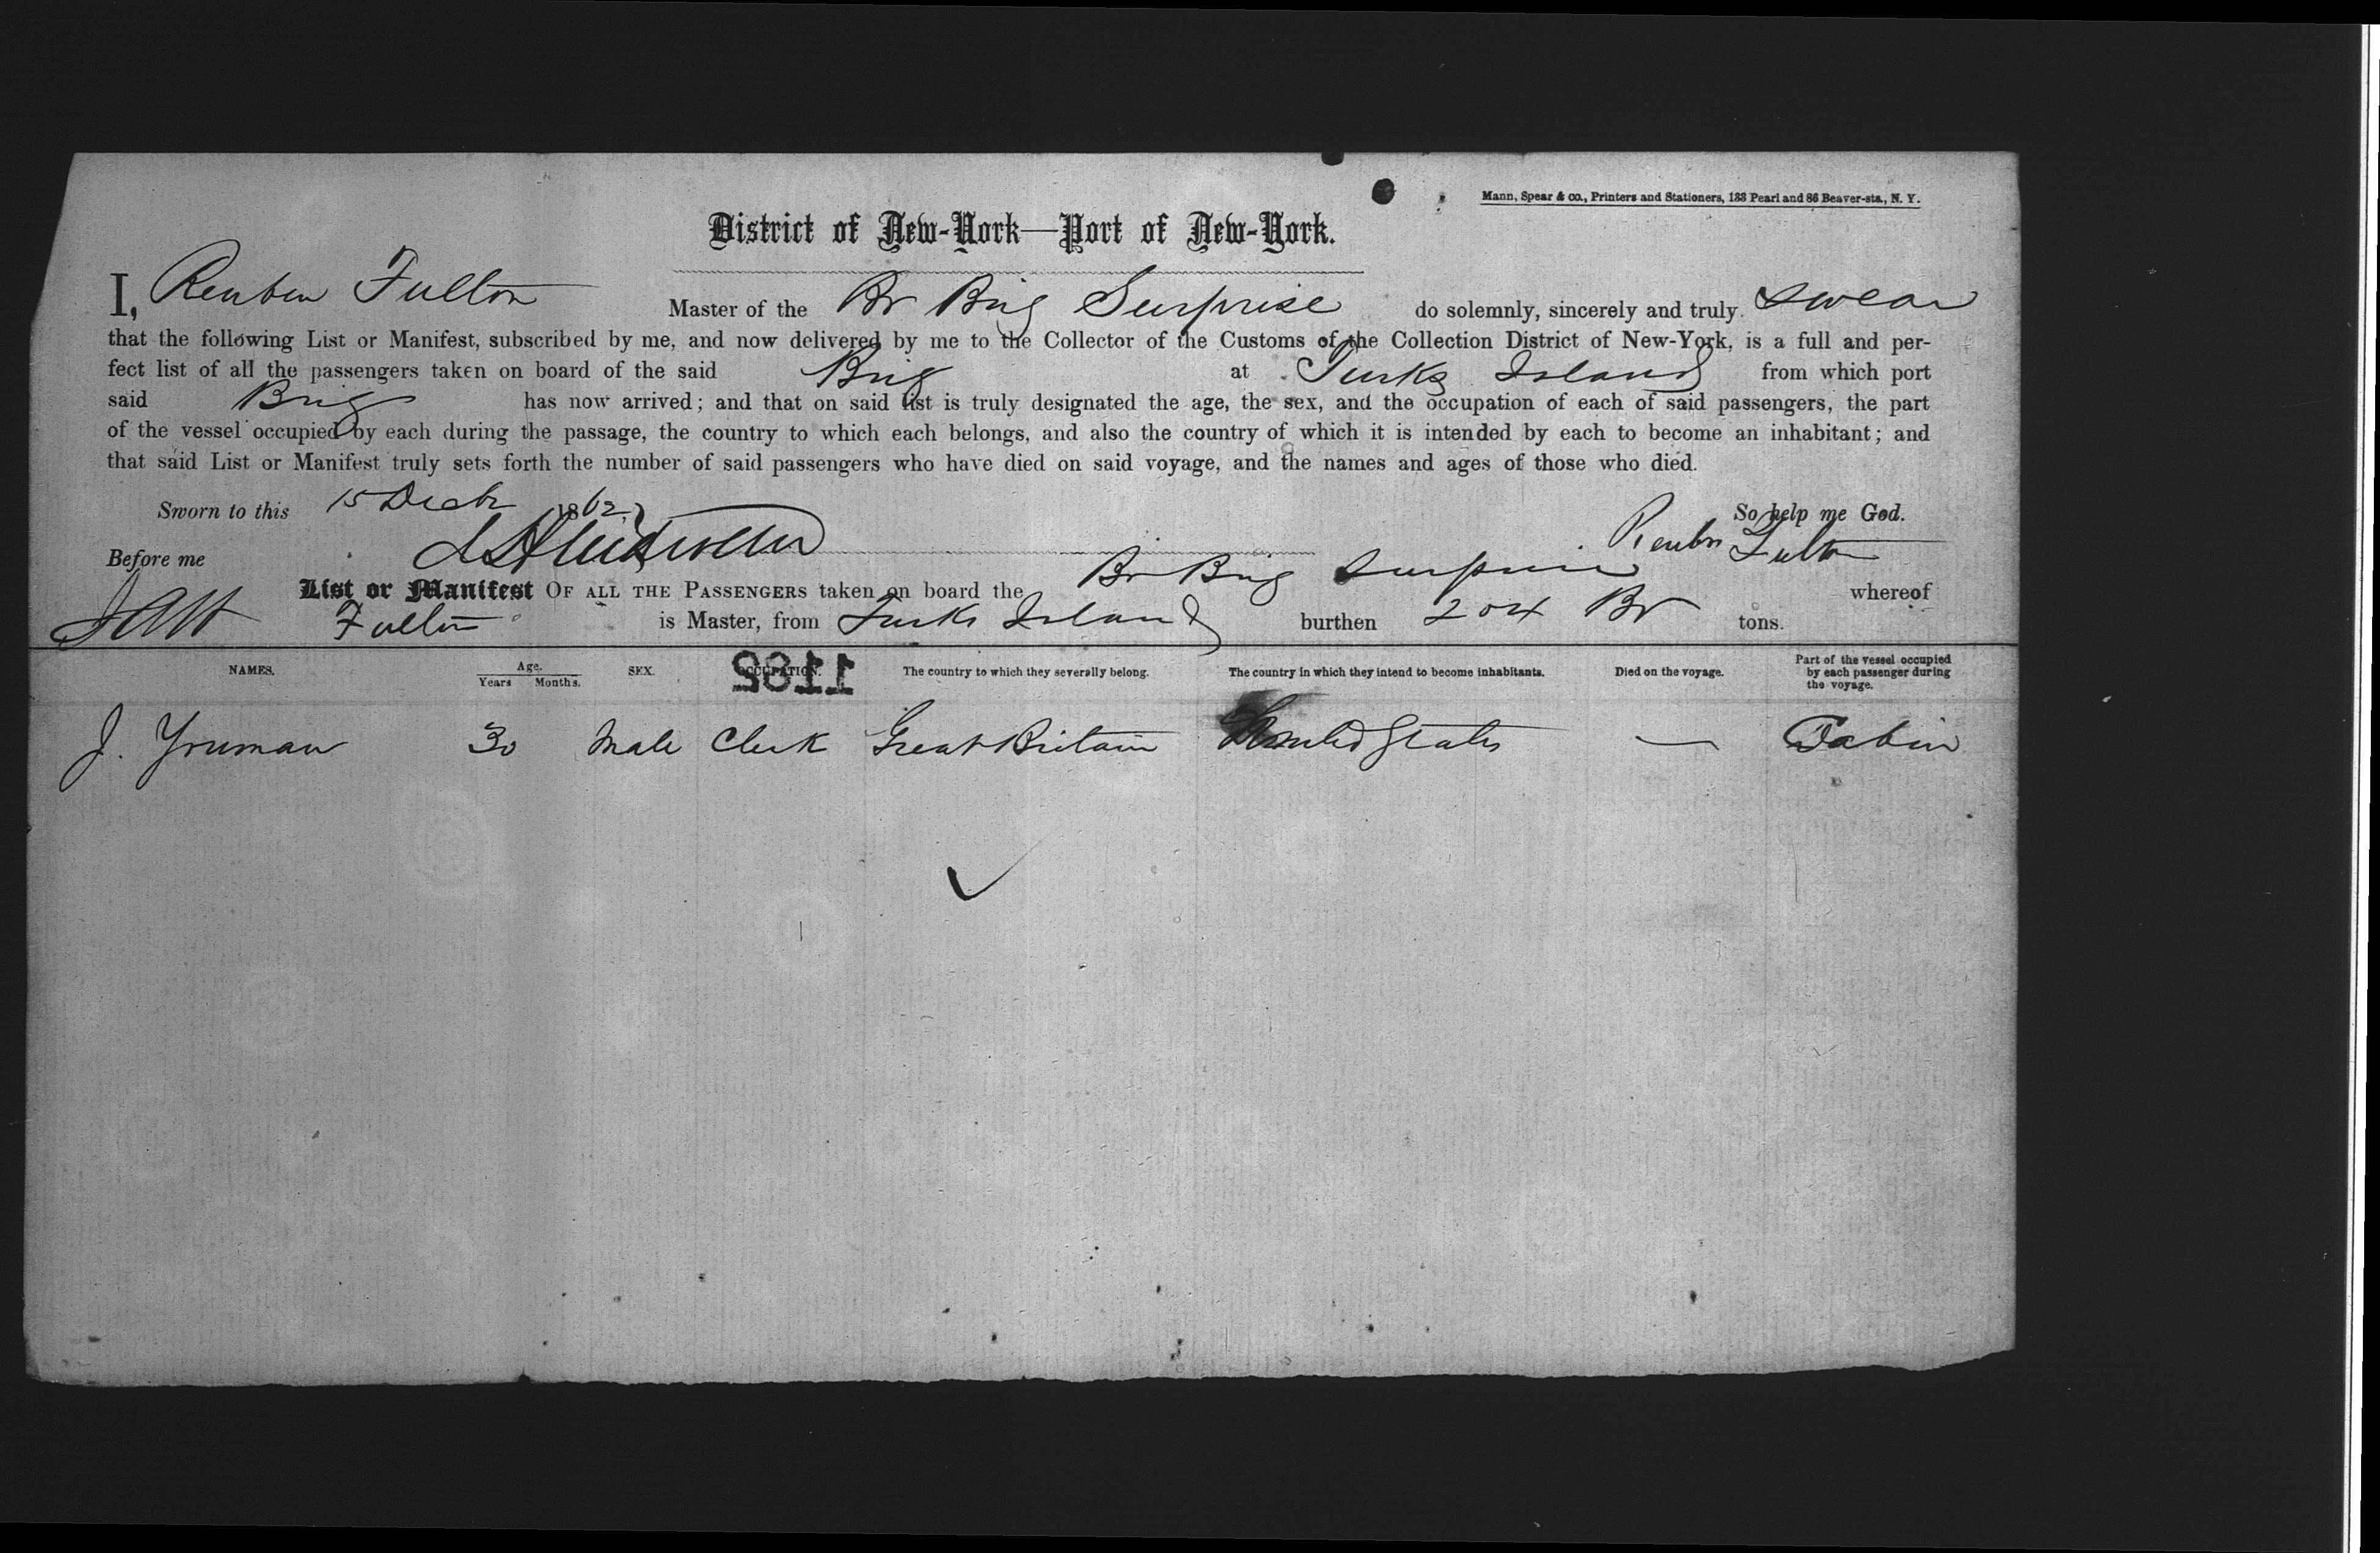 Mann, Spear & co., Printers and Stationers, 133 Pearl and 86 Beaver-sts., N. Y.
District of New-York—Port of New-York.
I, Reuben Fulton Master of the Br Brig Surprise do solemnly, sincerely and truly swear
that the following List or Manifest, subscribed by me, and now delivered by me to the Collector of the Customs of the Collection District of New-York, is a full and per-
fect list of all the passengers taken on board of the said Brig at Turks Island from which port
said Brig has now arrived; and that on said list is truly designated the age, the sex, and the occupation of each of said passengers, the part
of the vessel occupied by each during the passage, the country to which each belongs, and also the country of which it is intended by each to become an inhabitant; and
that said List or Manifest truly sets forth the number of said passengers who have died on said voyage, and the names and ages of those who died.
Sworn to this 15 Decbr 1862 So help me God.
Before me Reuben Fulton
List or Manifest OF ALL THE PASSENGERS taken on board the Br Brig Surprise whereof
Fulton is Master, from Turks Island burthen 204 Br tons.
NAMES. Age. Years Months. SEX. OCCUPATION. The country to which they severally belong. The country in which they intend to become inhabitants. Died on the voyage. Part of the vessel occupied by each passenger during the voyage.
1182
J. Yruman 30 Male Clerk Great Britain United States — Cabin